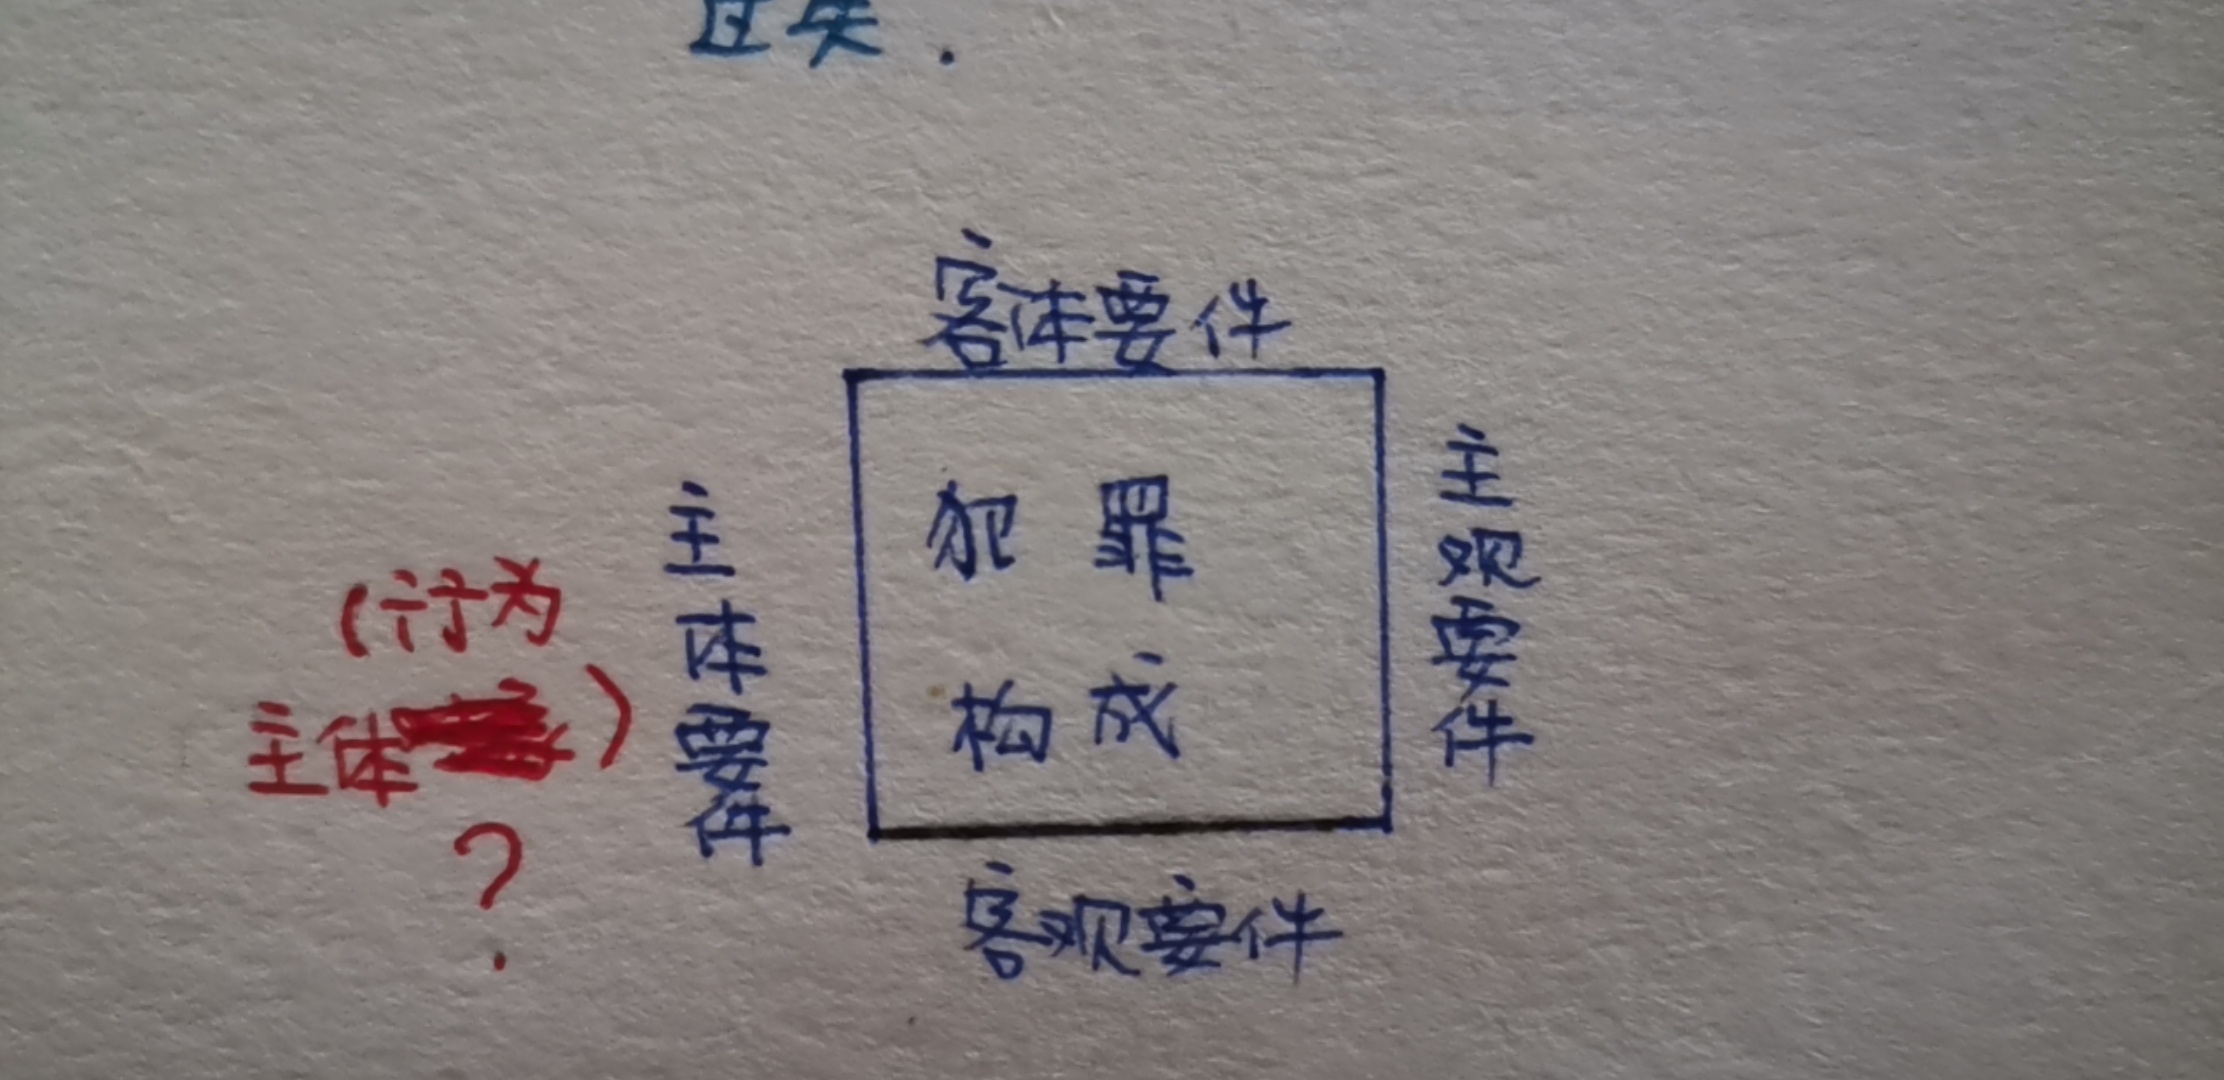 过失.
客体要件
主体要件
犯罪
构成
主观要件
客观要件
(行为
主体)
?